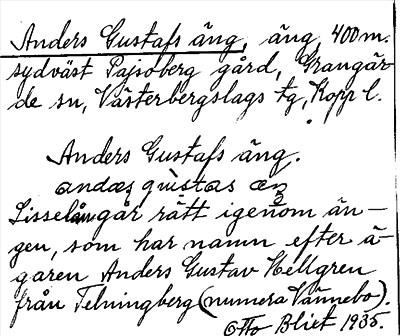 Anders Gustafs äng, äng, 400 m.
sydväst Pajsoberg gård, Grangär-
de sn, Västerbergslags tg, Kopp l.
Anders Gustafs äng.
andas gùstas æŋ
Lisselån går rätt igenom än-
gen, som har namn efter ä-
garen Anders Gustav Hellgren
från Telningberg (numera Vännebo).
Otto Blixt 1935.